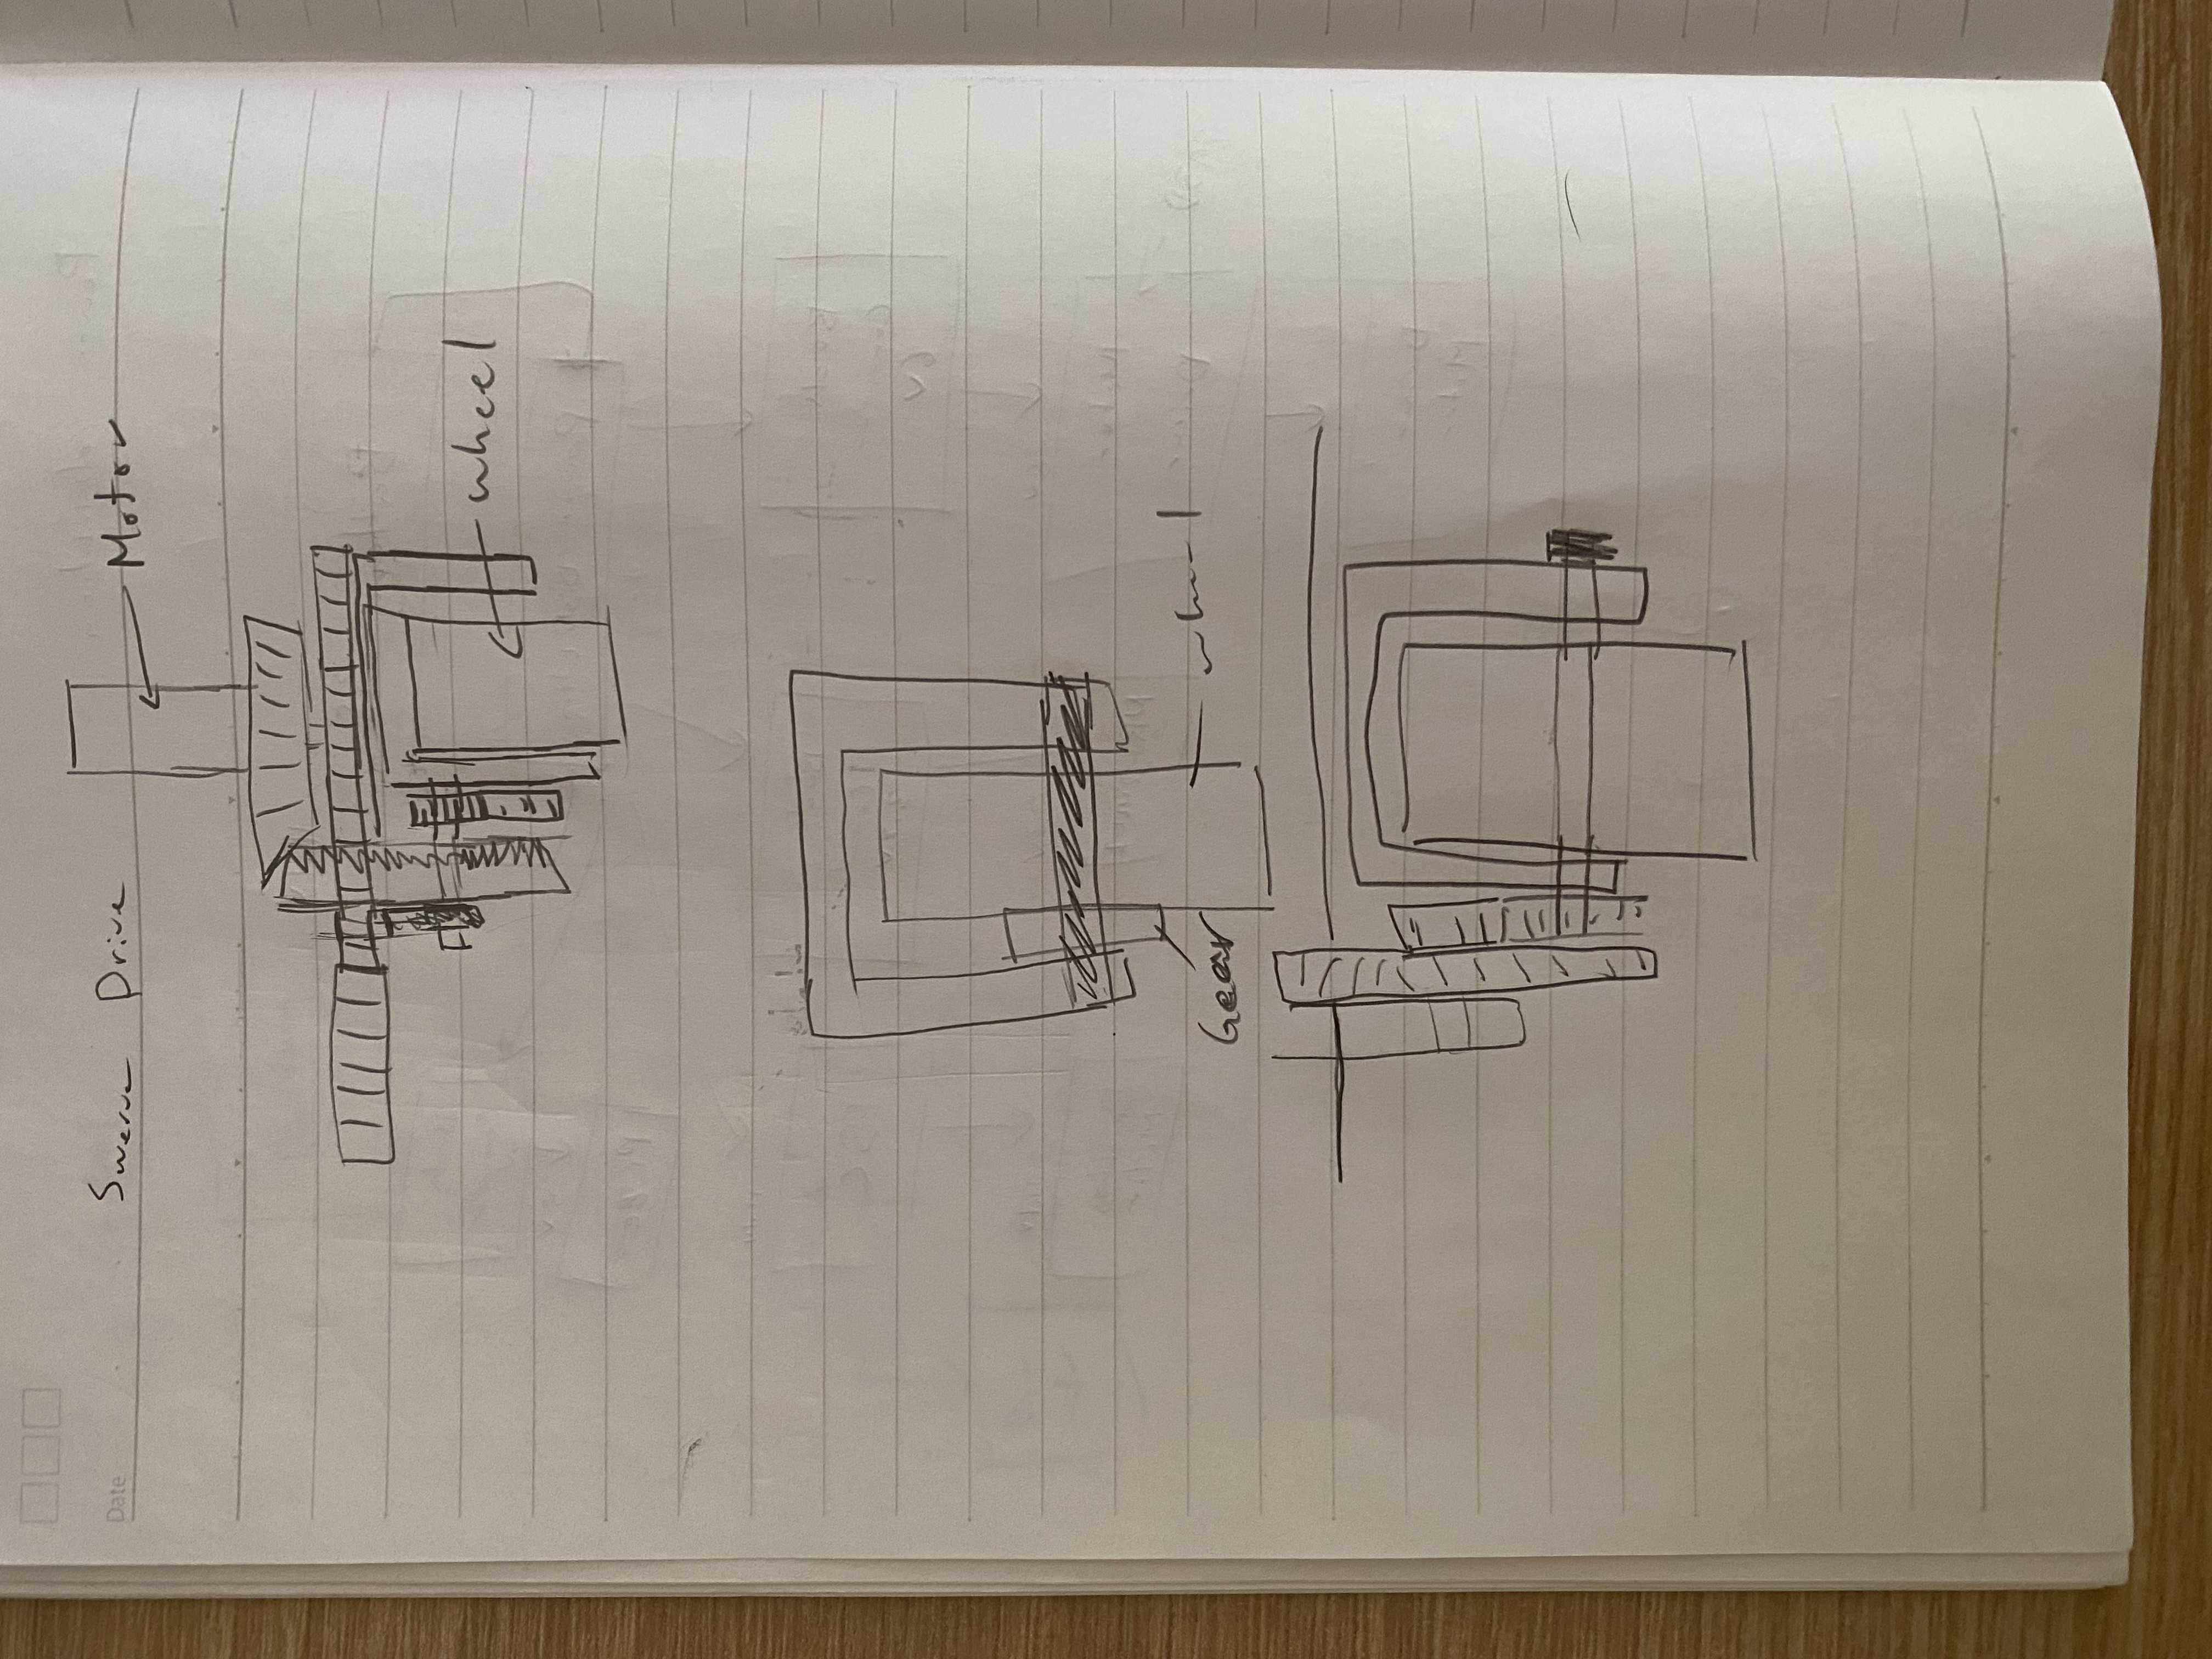 Date
Swerve Drive
Motor
wheel
Gear
wheel